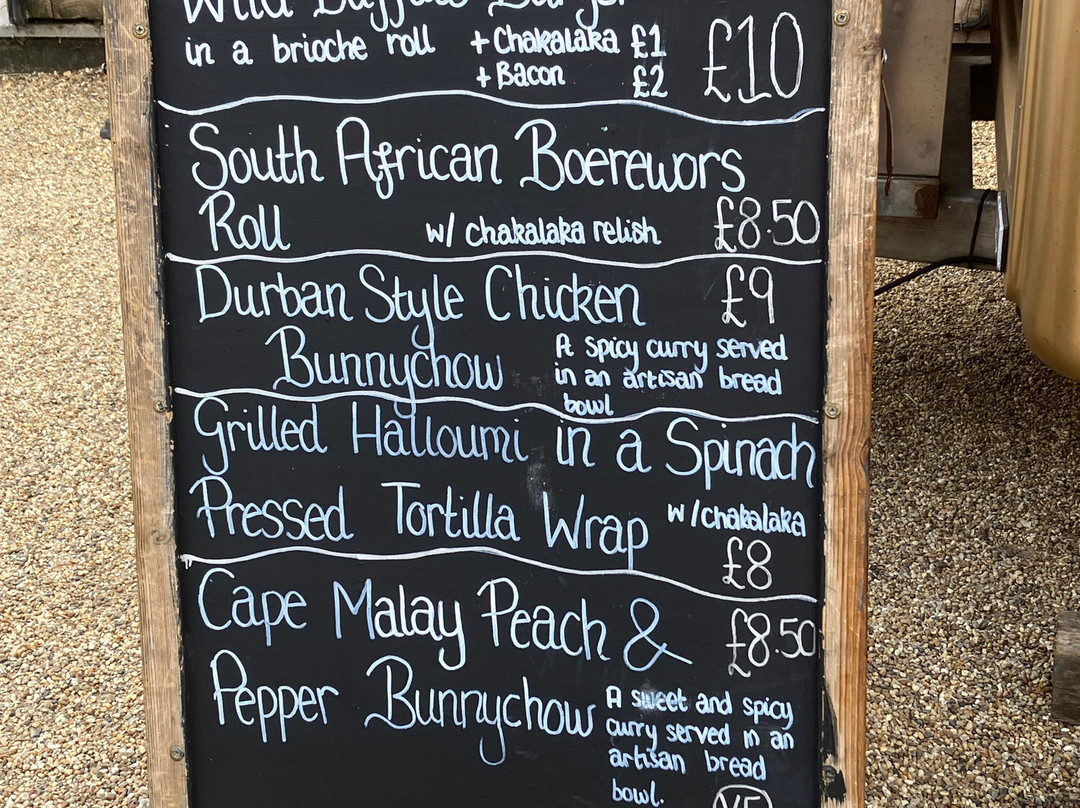 Wild Buffalo Burger
in a brioche roll + Chakalaka £1 £10
+ Bacon £2
South African Boerewors
Roll w/ chakalaka relish £8.50
Durban Style Chicken £9
Bunnychow A spicy curry served
in an artisan bread
bowl
Grilled Halloumi in a Spinach
Pressed Tortilla Wrap w/chakalaka
£8
Cape Malay Peach & £8.50
Pepper Bunnychow A sweet and spicy
curry served in an
artisan bread
bowl.